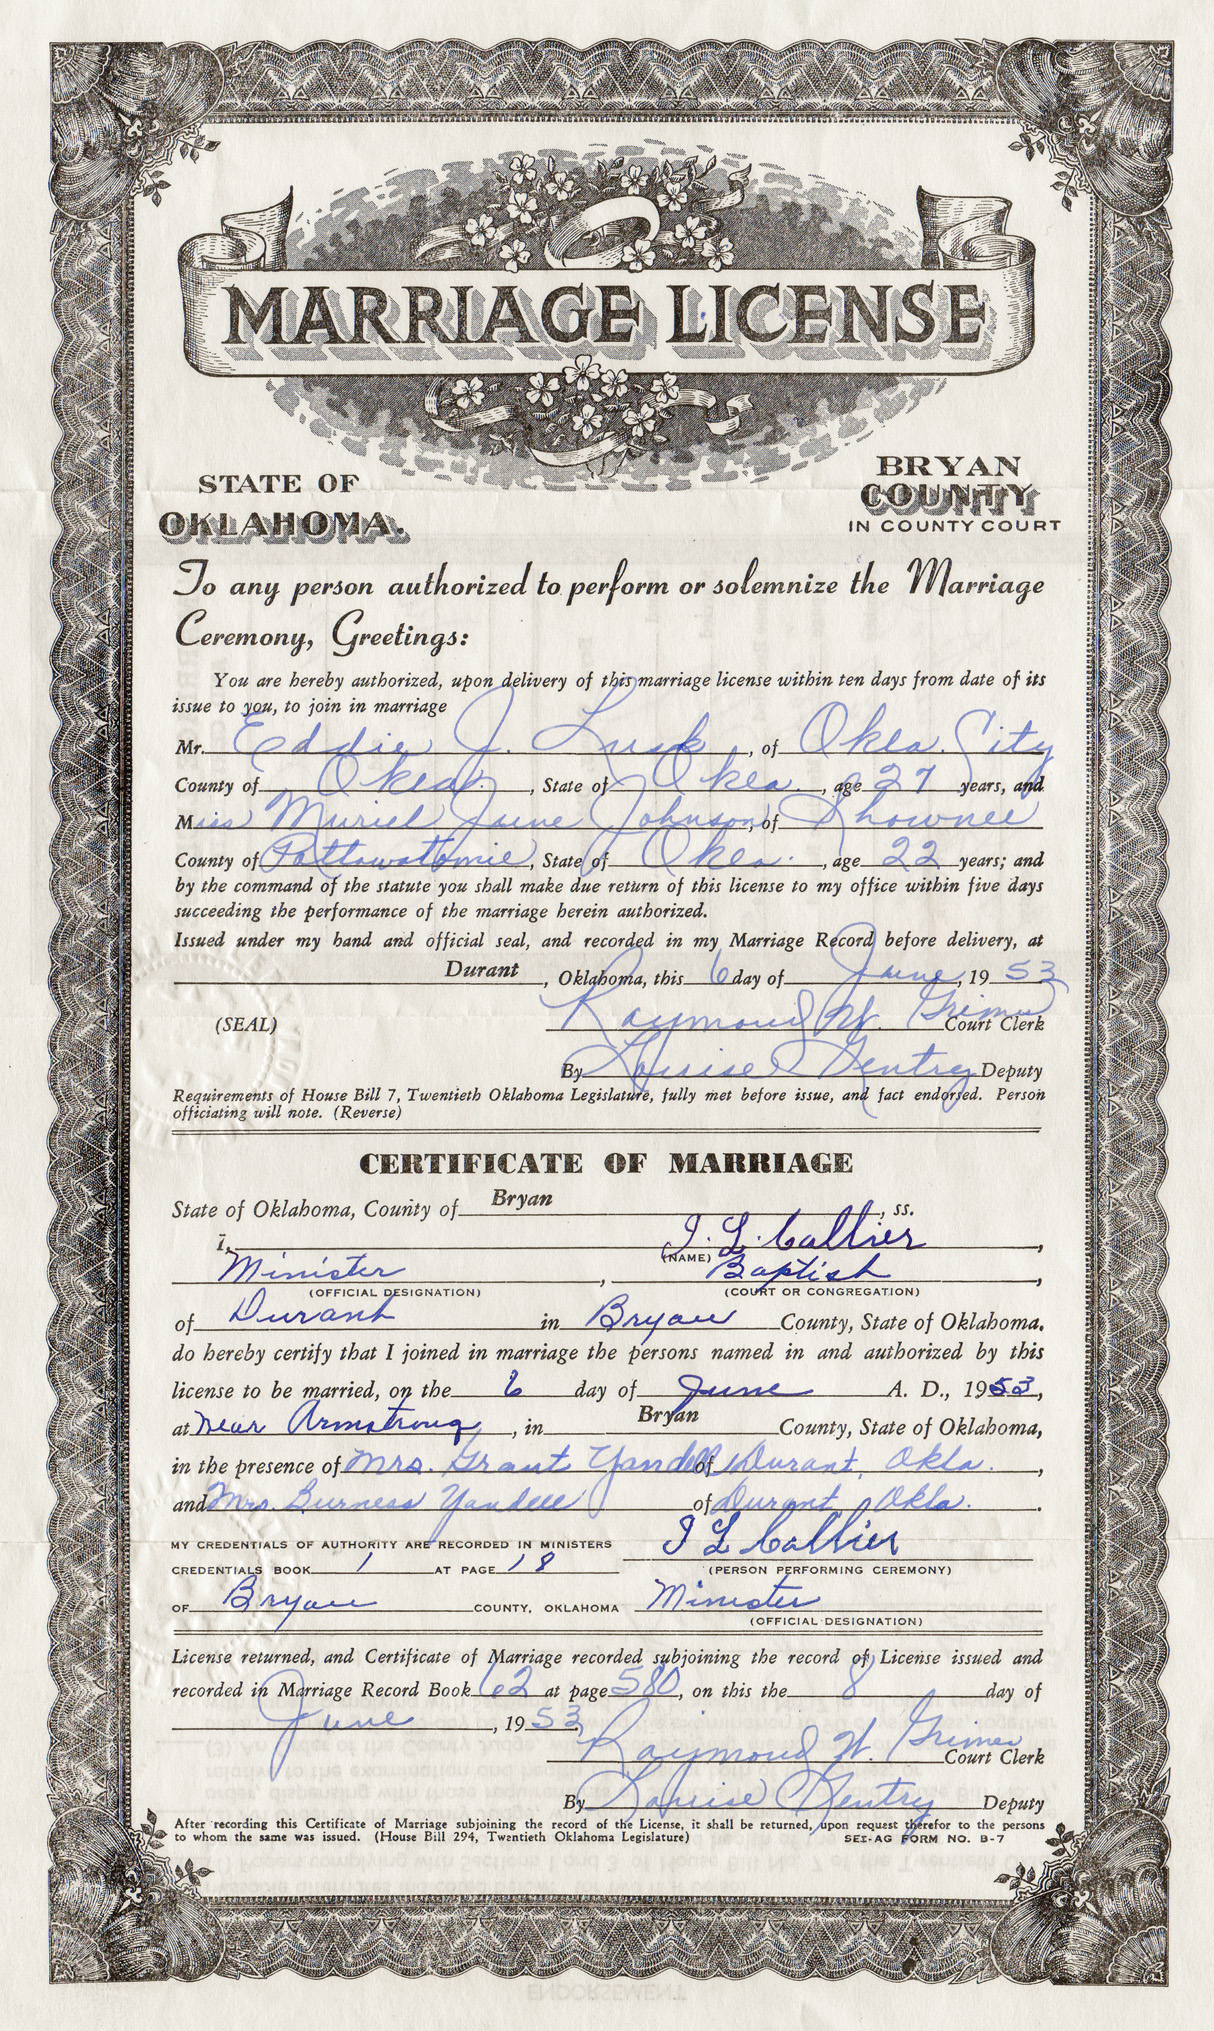 MARRIAGE LICENSE
STATE OF
OKLAHOMA.
BRYAN
COUNTY
IN COUNTY COURT
To any person authorized to perform or solemnize the Marriage
Ceremony, Greetings:
You are hereby authorized, upon delivery of this marriage license within ten days from date of its
issue to you, to join in marriage
Mr. Eddie J. Lusk, of Okla. City
County of Okla., State of Okla., age 27 years, and
Miss Muriel June Johnson, of Shawnee
County of Pottawatomie, State of Okla., age 22 years; and
by the command of the statute you shall make due return of this license to my office within five days
succeeding the performance of the marriage herein authorized.
Issued under my hand and official seal, and recorded in my Marriage Record before delivery, at
Durant, Oklahoma, this 6 day of June, 1953
(SEAL)
Raymond W. Grimes Court Clerk
By Louise Gentry Deputy
Requirements of House Bill 7, Twentieth Oklahoma Legislature, fully met before issue, and fact endorsed. Person
officiating will note. (Reverse)
CERTIFICATE OF MARRIAGE
State of Oklahoma, County of Bryan, ss.
I, J. L. Collier,
(NAME)
Minister, Baptist,
(OFFICIAL DESIGNATION) (COURT OR CONGREGATION)
of Durant in Bryan County, State of Oklahoma,
do hereby certify that I joined in marriage the persons named in and authorized by this
license to be married, on the 6 day of June A. D., 1953,
at near Armstrong, in Bryan County, State of Oklahoma,
in the presence of Mrs. Grant Yandell of Durant, Okla.,
and Mrs. Burness Yandell of Durant, Okla.
MY CREDENTIALS OF AUTHORITY ARE RECORDED IN MINISTERS
J L Collier
CREDENTIALS BOOK 1 AT PAGE 18
(PERSON PERFORMING CEREMONY)
OF Bryan COUNTY, OKLAHOMA Minister
(OFFICIAL DESIGNATION)
License returned, and Certificate of Marriage recorded subjoining the record of License issued and
recorded in Marriage Record Book 62 at page 580, on this the 8 day of
June, 1953
Raymond W. Grimes Court Clerk
By Louise Gentry Deputy
After recording this Certificate of Marriage subjoining the record of the License, it shall be returned, upon request therefor to the persons
to whom the same was issued. (House Bill 294, Twentieth Oklahoma Legislature) SEI-AG FORM NO. B-7
ENDORSEMENT